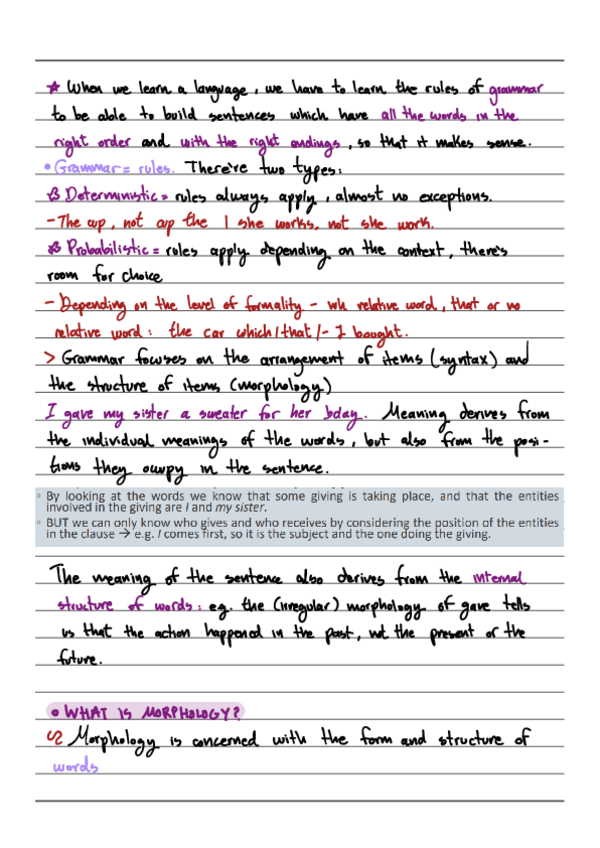 * When we learn a language, we have to learn the rules of grammar
to be able to build sentences which have all the words in the
right order and with the right endings, so that it makes sense.
• Grammar = rules. There're two types:
↳ Deterministic = rules always apply, almost no exceptions.
- The cup, not cup the / she works, not she work.
↳ Probabilistic = rules apply depending on the context, there's
room for choice
- Depending on the level of formality - wh relative word, that or no
relative word: the car which/that/- I bought.
> Grammar focuses on the arrangement of items (syntax) and
the structure of items (morphology)
I gave my sister a sweater for her bday. Meaning derives from
the individual meanings of the words, but also from the posi-
tions they occupy in the sentence.
◦ By looking at the words we know that some giving is taking place, and that the entities
involved in the giving are I and my sister.
◦ BUT we can only know who gives and who receives by considering the position of the entities
in the clause → e.g. I comes first, so it is the subject and the one doing the giving.
The meaning of the sentence also derives from the internal
structure of words: eg. the (irregular) morphology of gave tells
us that the action happened in the past, not the present or the
future.
• WHAT IS MORPHOLOGY?
↳ Morphology is concerned with the form and structure of
words